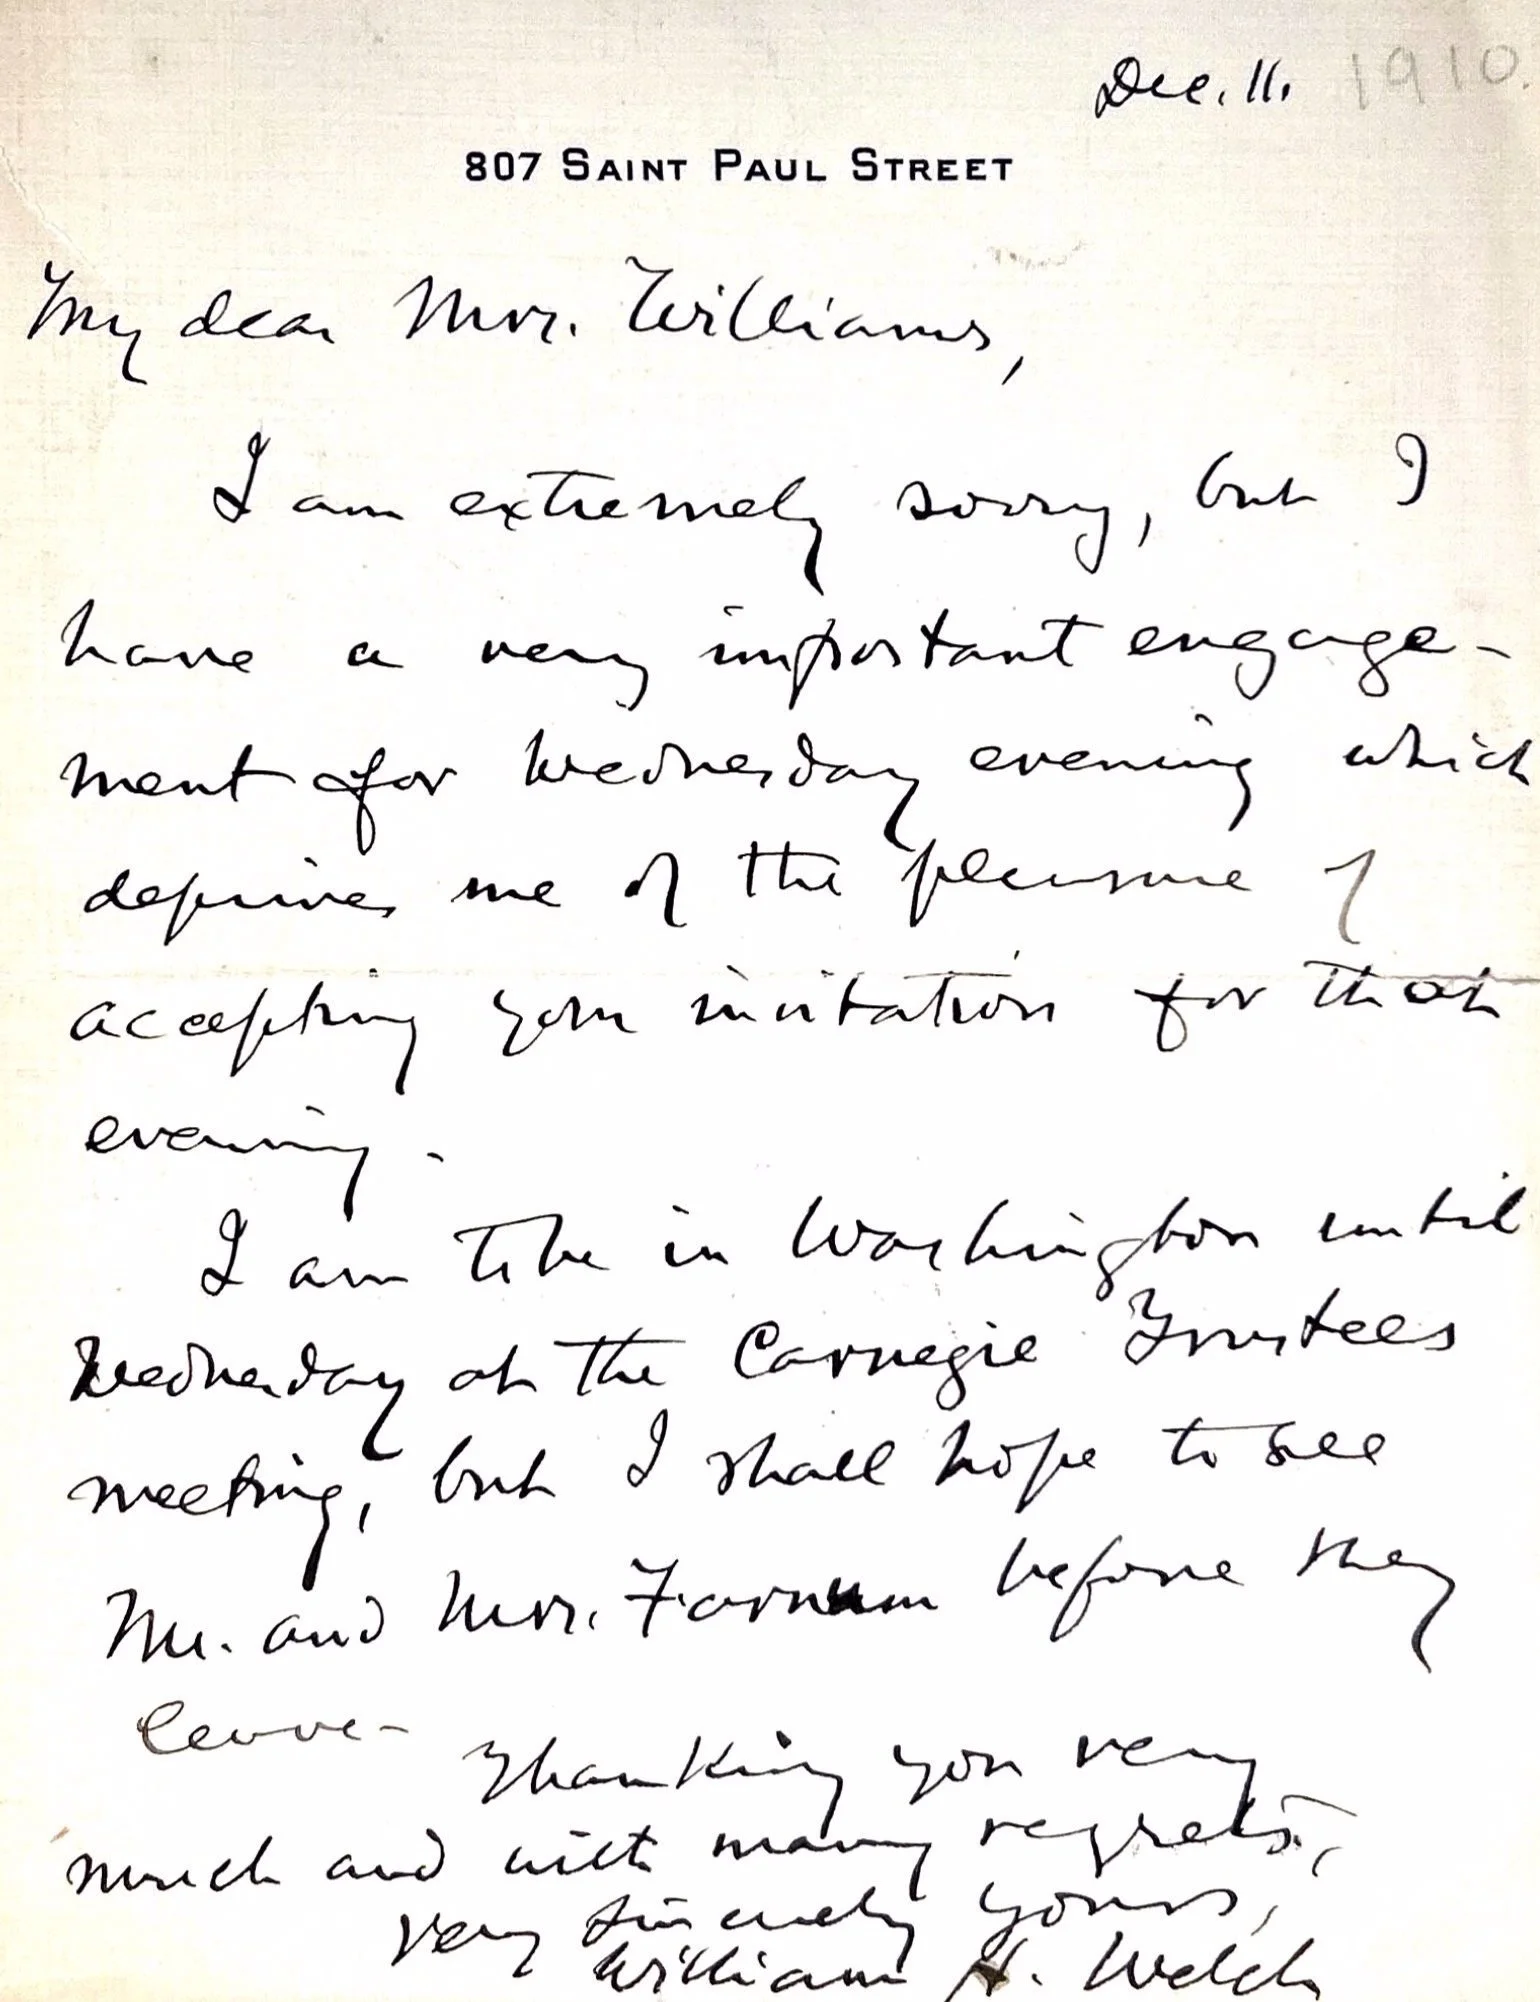 Dec. 11. 1910.
807 SAINT PAUL STREET
My dear Mrs. Williams,
I am extremely sorry, but I
have a very important engage-
ment for Wednesday evening which
deprives me of the pleasure of
accepting your invitation for that
evening.
I am to be in Washington until
Wednesday at the Carnegie Trustees
meeting, but I shall hope to see
Mr. and Mrs. Farnum before they
leave-
Thanking you very
much and with many regrets,
very sincerely yours,
William H. Welch